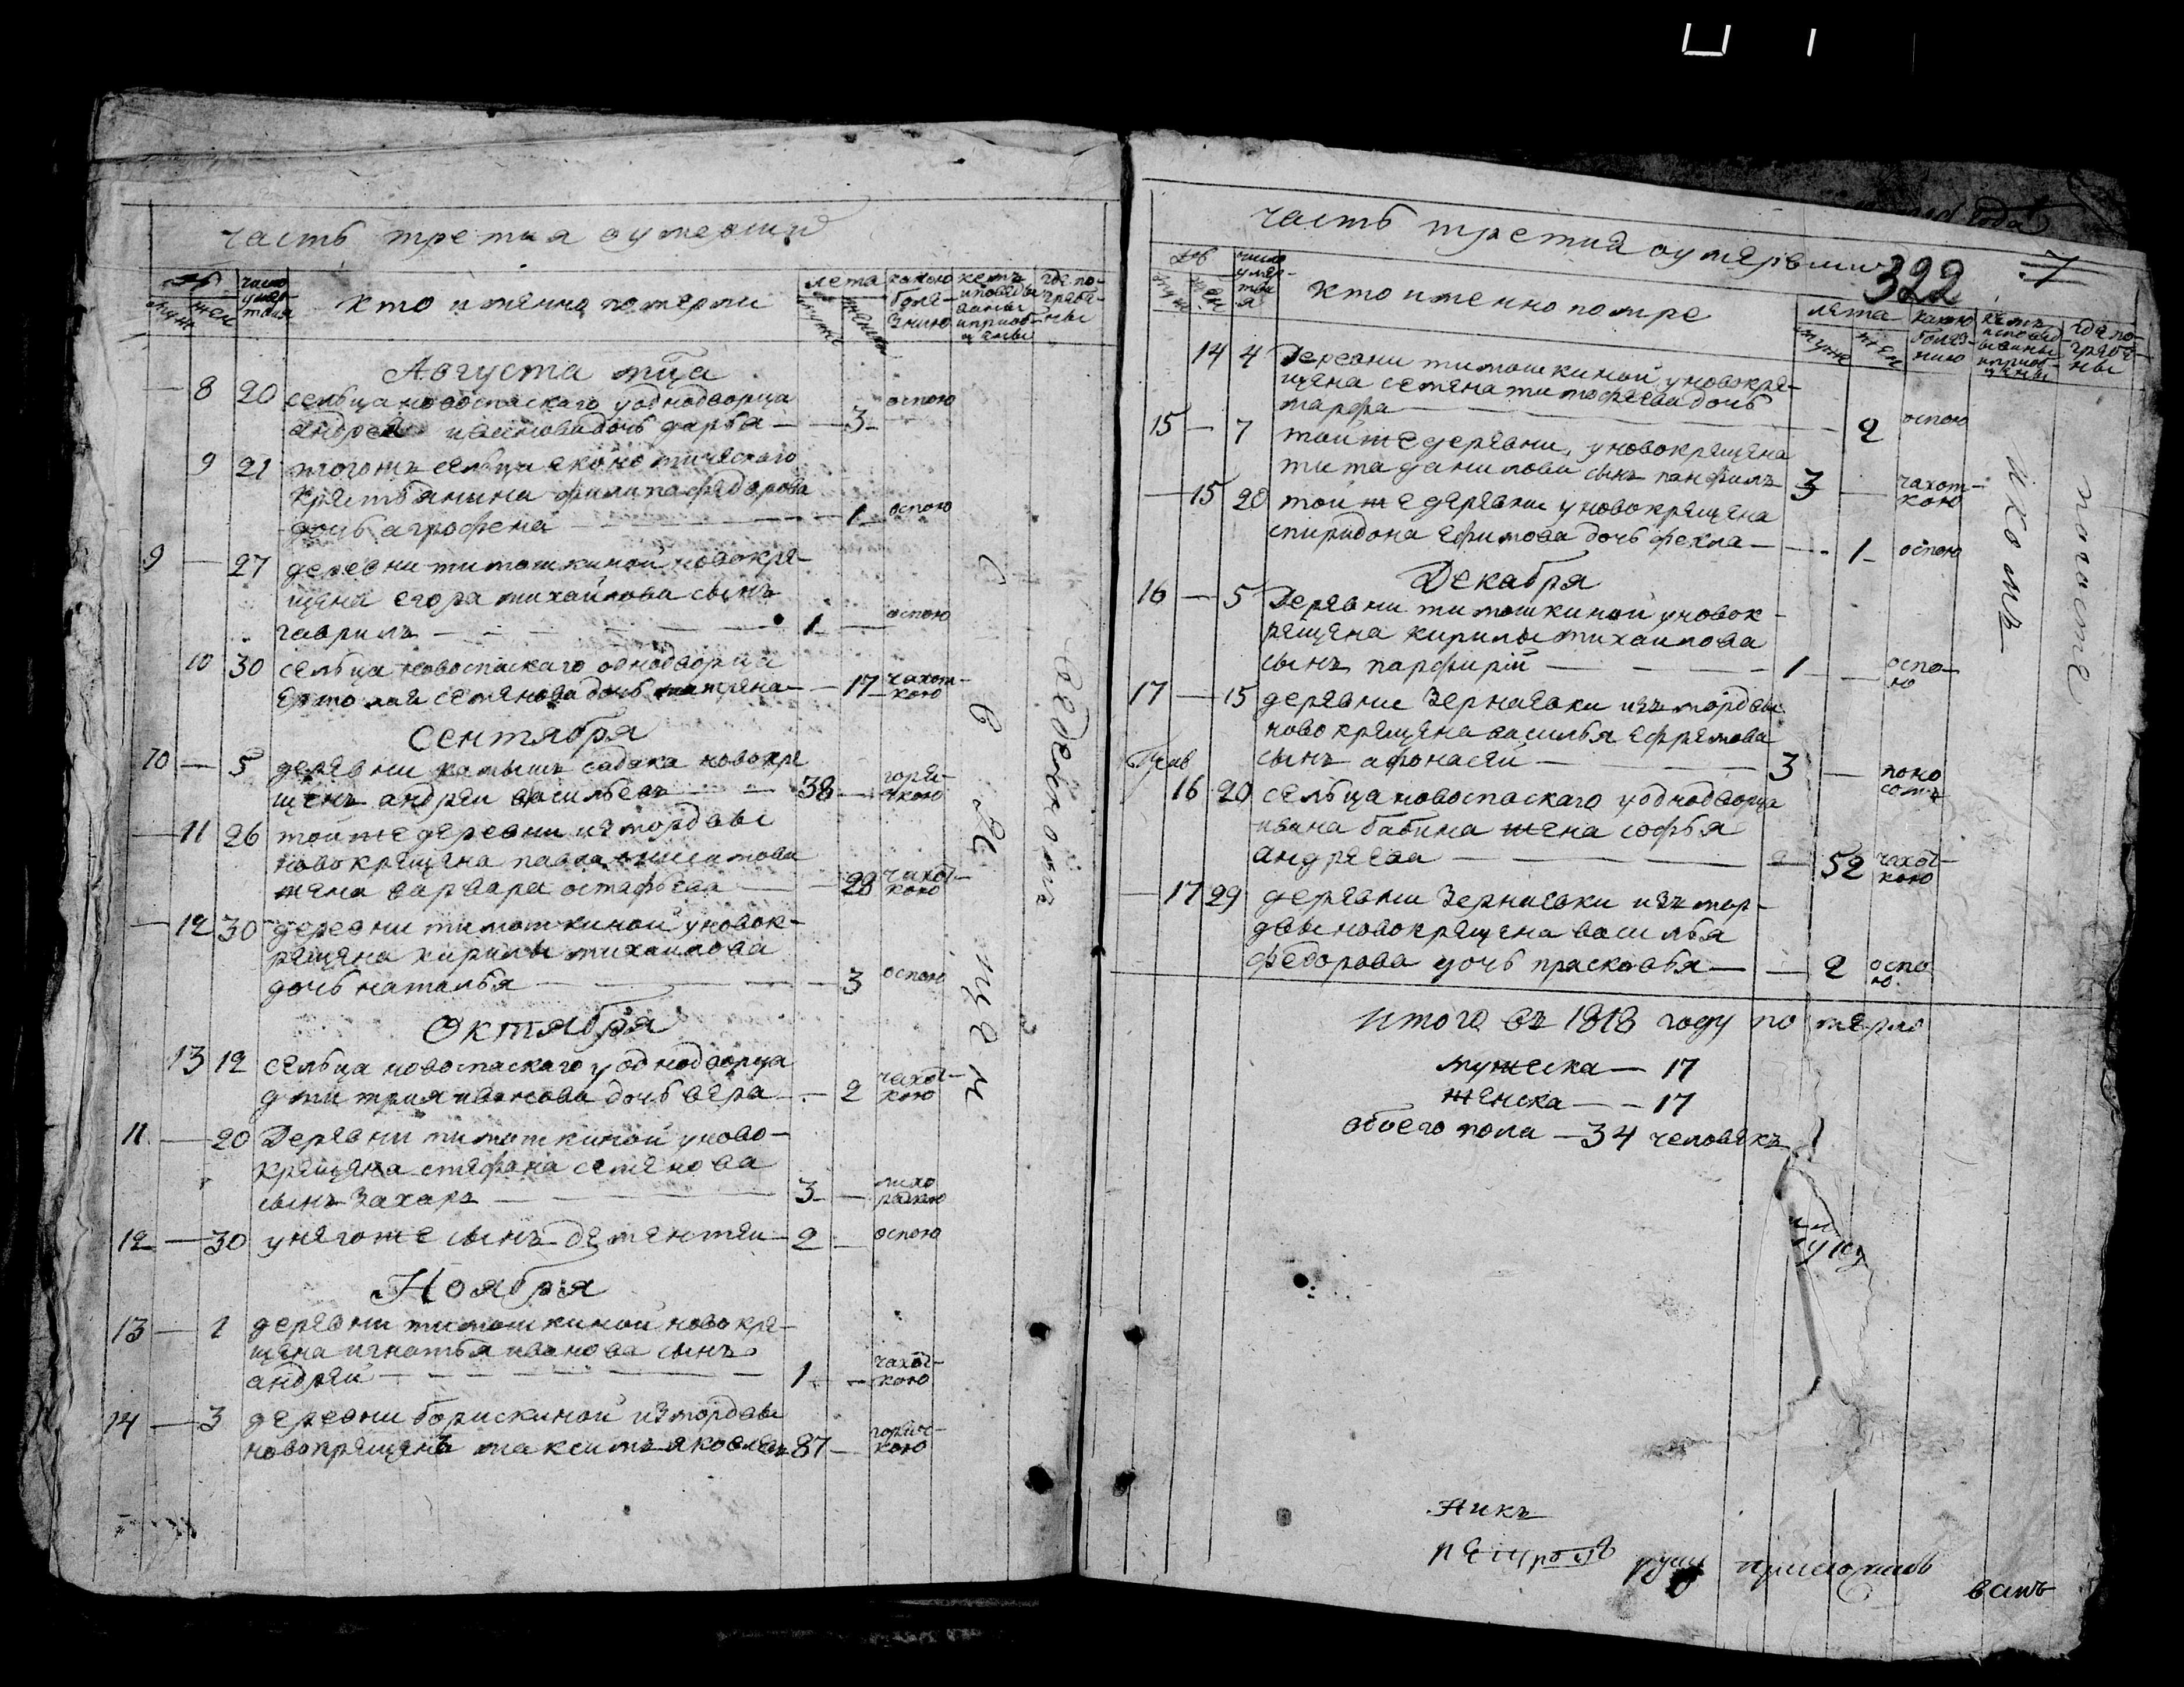 часть третия оумерши
№ число умертвия
муж жен
кто имянно померли
лета
мужс женска
какою болезнию
кемъ исповеды ваны иприоб щены
где по гребе ны
Августа мца
8 20 сельца новоспаскаго у однодворца
андрея иванова дочь дарья — 3 оспою
9 21 тогожъ сельца економическаго
крестьянина филипа федорова
дочь агрофена — 1 оспою
9 — 27 деревни тимошкиной новокре-
щена егора михайлова сынъ
гаврилъ — 1 — оспою
10 30 сельца новоспаскаго однодворца
ермолая семенова дочь матрена — 17 чахот-
кою
Сентября
10 — 5 деревни камышъ садака новокре
щенъ андреи васильевъ — 38 — горя-
чкою
— 11 26 тойже деревни из мордвы
новокрещена павла
жена варвара остафьева — 28 чахот-
кою
— 12 30 деревни тимошкиной уновок-
рещена кирилы михаилова
дочь наталья — 3 оспою
Октября
13 12 сельца новоспаскаго у однодворца
дмитрия иванова дочь вера — 2 чахот-
кою
11 — 20 Деревни тимошкиной уново-
крещена стефана семенова
сынъ Захаръ — 3 — лихо
радкою
12 — 30 унегоже сынъ дементеи 2 — оспою
Ноября
13 — 1 деревни тимошкинои новокре-
щена игнатья иванова сынъ
андрей — 1 — чахот-
кою
14 — 3 деревни борискиной изъ мордвы
новокрещенъ максимъ яковлевъ 87 — горяч-
кою
священ
часть третия оумершии
322 7
№ число умер-
тви
я
муж. жен
кто именно помре
лета
муж жен
какою
болез-
нию
кемъ
исповед-
ываны
иприоб-
щены
где по-
гребе-
ны
14 4 Деревни тимошкиной уновокре-
щена семена тимофеева дочь
марфа — 2 оспою
15 — 7 тойже деревни, уновокрещена
тита данилова сынъ панфилъ 3 — чахот-
кою
— 15 20 той же деревни уновокрещена
спиридона ефимова дочь фекла — 1 — оспою
Декабря
16 — 5 Деревни тимошкиной уновок-
рещена кирилы михаилова
сынъ парфирiй — 1 — оспо-
ю
17 — 15 деревни Зерклевки изъ мордвы
новокрещена василья ефремова
сынъ афонасей — 3 — поно
сомъ
16 20 сельца новоспаскаго у однодворца
ивана бабина жена софья
андреева — 52 чахот-
кою
— 17 29 деревни Зерклевки изъ мор-
двы новокрещена василья
федорова дочь прасковья — 2 оспо
ю
итого въ 1818 году по мерло
мужеска — 17
женска — 17
обоего пола — 34 человекъ
руку приложилъ